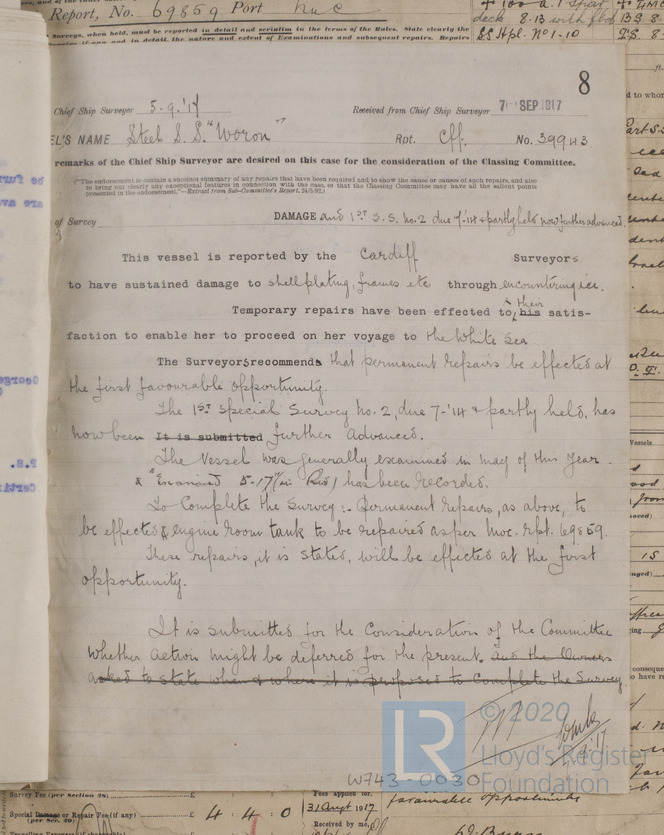 Report, No. 69859 Port nwc
Surveys, when held, must be reported in detail and serialim in the terms of the Rules. State clearly the
8
Chief Ship Surveyor 5-9-'17 Received from Chief Ship Surveyor 7 SEP 1917
EL'S NAME Steel S.S. "Woron" Rpt. Cff. No. 39943
remarks of the Chief Ship Surveyor are desired on this case for the consideration of the Classing Committee.
("The endorsement to contain a succinct summary of any repairs that have been required and to show the cause or causes of such repairs, and also
to bring out clearly any exceptional features in connection with the case, so that the Classing Committee may have all the salient points
presented in the endorsement."—Extract from Sub-Committee's Report, 24/5/92.)
of Survey DAMAGE and 1st S.S. No. 2 due 7-'14 & partly held now further advanced.
This vessel is reported by the Cardiff Surveyors
to have sustained damage to shell plating, frames etc through encountering ice.
Temporary repairs have been effected to his their satis-
faction to enable her to proceed on her voyage to the White Sea
The Surveyors recommends that permanent repairs be effected at
the first favourable opportunity.
The 1st Special Survey No. 2, due 7-'14 & partly held, has
now been It is submitted further advanced.
The Vessel was generally examined in May of this year
& "Examined 5-17 (in Red) has been recorded.
To Complete the Survey:- Permanent repairs, as above, to
be effected & engine room tank to be repaired as per Nwc. rpt. 69859.
These repairs, it is stated, will be effected at the first
opportunity.
It is submitted for the Consideration of the Committee
whether action might be deferred for the present. and the Owners
asked to state when & where it is proposed to Complete the Survey
LR © 2020
Lloyd's Register
Foundation
W743-0030
Survey Fee (per Section 28) £
Special Damage or Repair Fee (if any) £ 4 : 4 : 0
(per Sec. 29)
Fees applied for,
31 Augt 1917
Received by me,
favourable opportunities